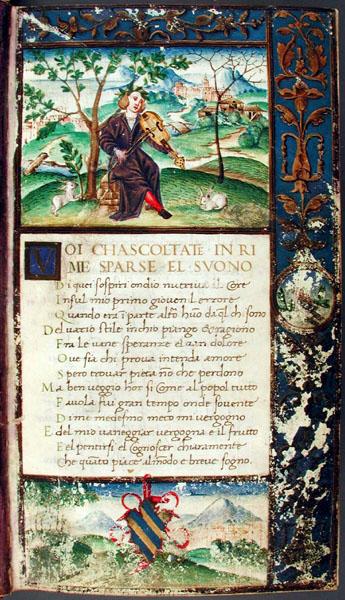 VOI CHASCOLTATE IN RI
ME SPARSE EL SVONO
Di quei sospiri ondio nutriva il core
Insul mio primo giovenil errore
Quando era ĩ parte altr'o huõ da ql ch sono
Del vario stile inchio piango & ragiono
Fra le vane speranze el van dolore
Ove sia chi prova intenda amore
Spero trovar pieta nõ che perdono
Ma ben veggio hor si Come al popol tutto
Favola fui gran tempo onde sovente
Di me medesmo meco mi vergogno
E del mio vaneggiar vergogna e il frutto
E el pentirsi el Cognoscer chiaramente
Che quãto piace al mõdo e breve sogno.